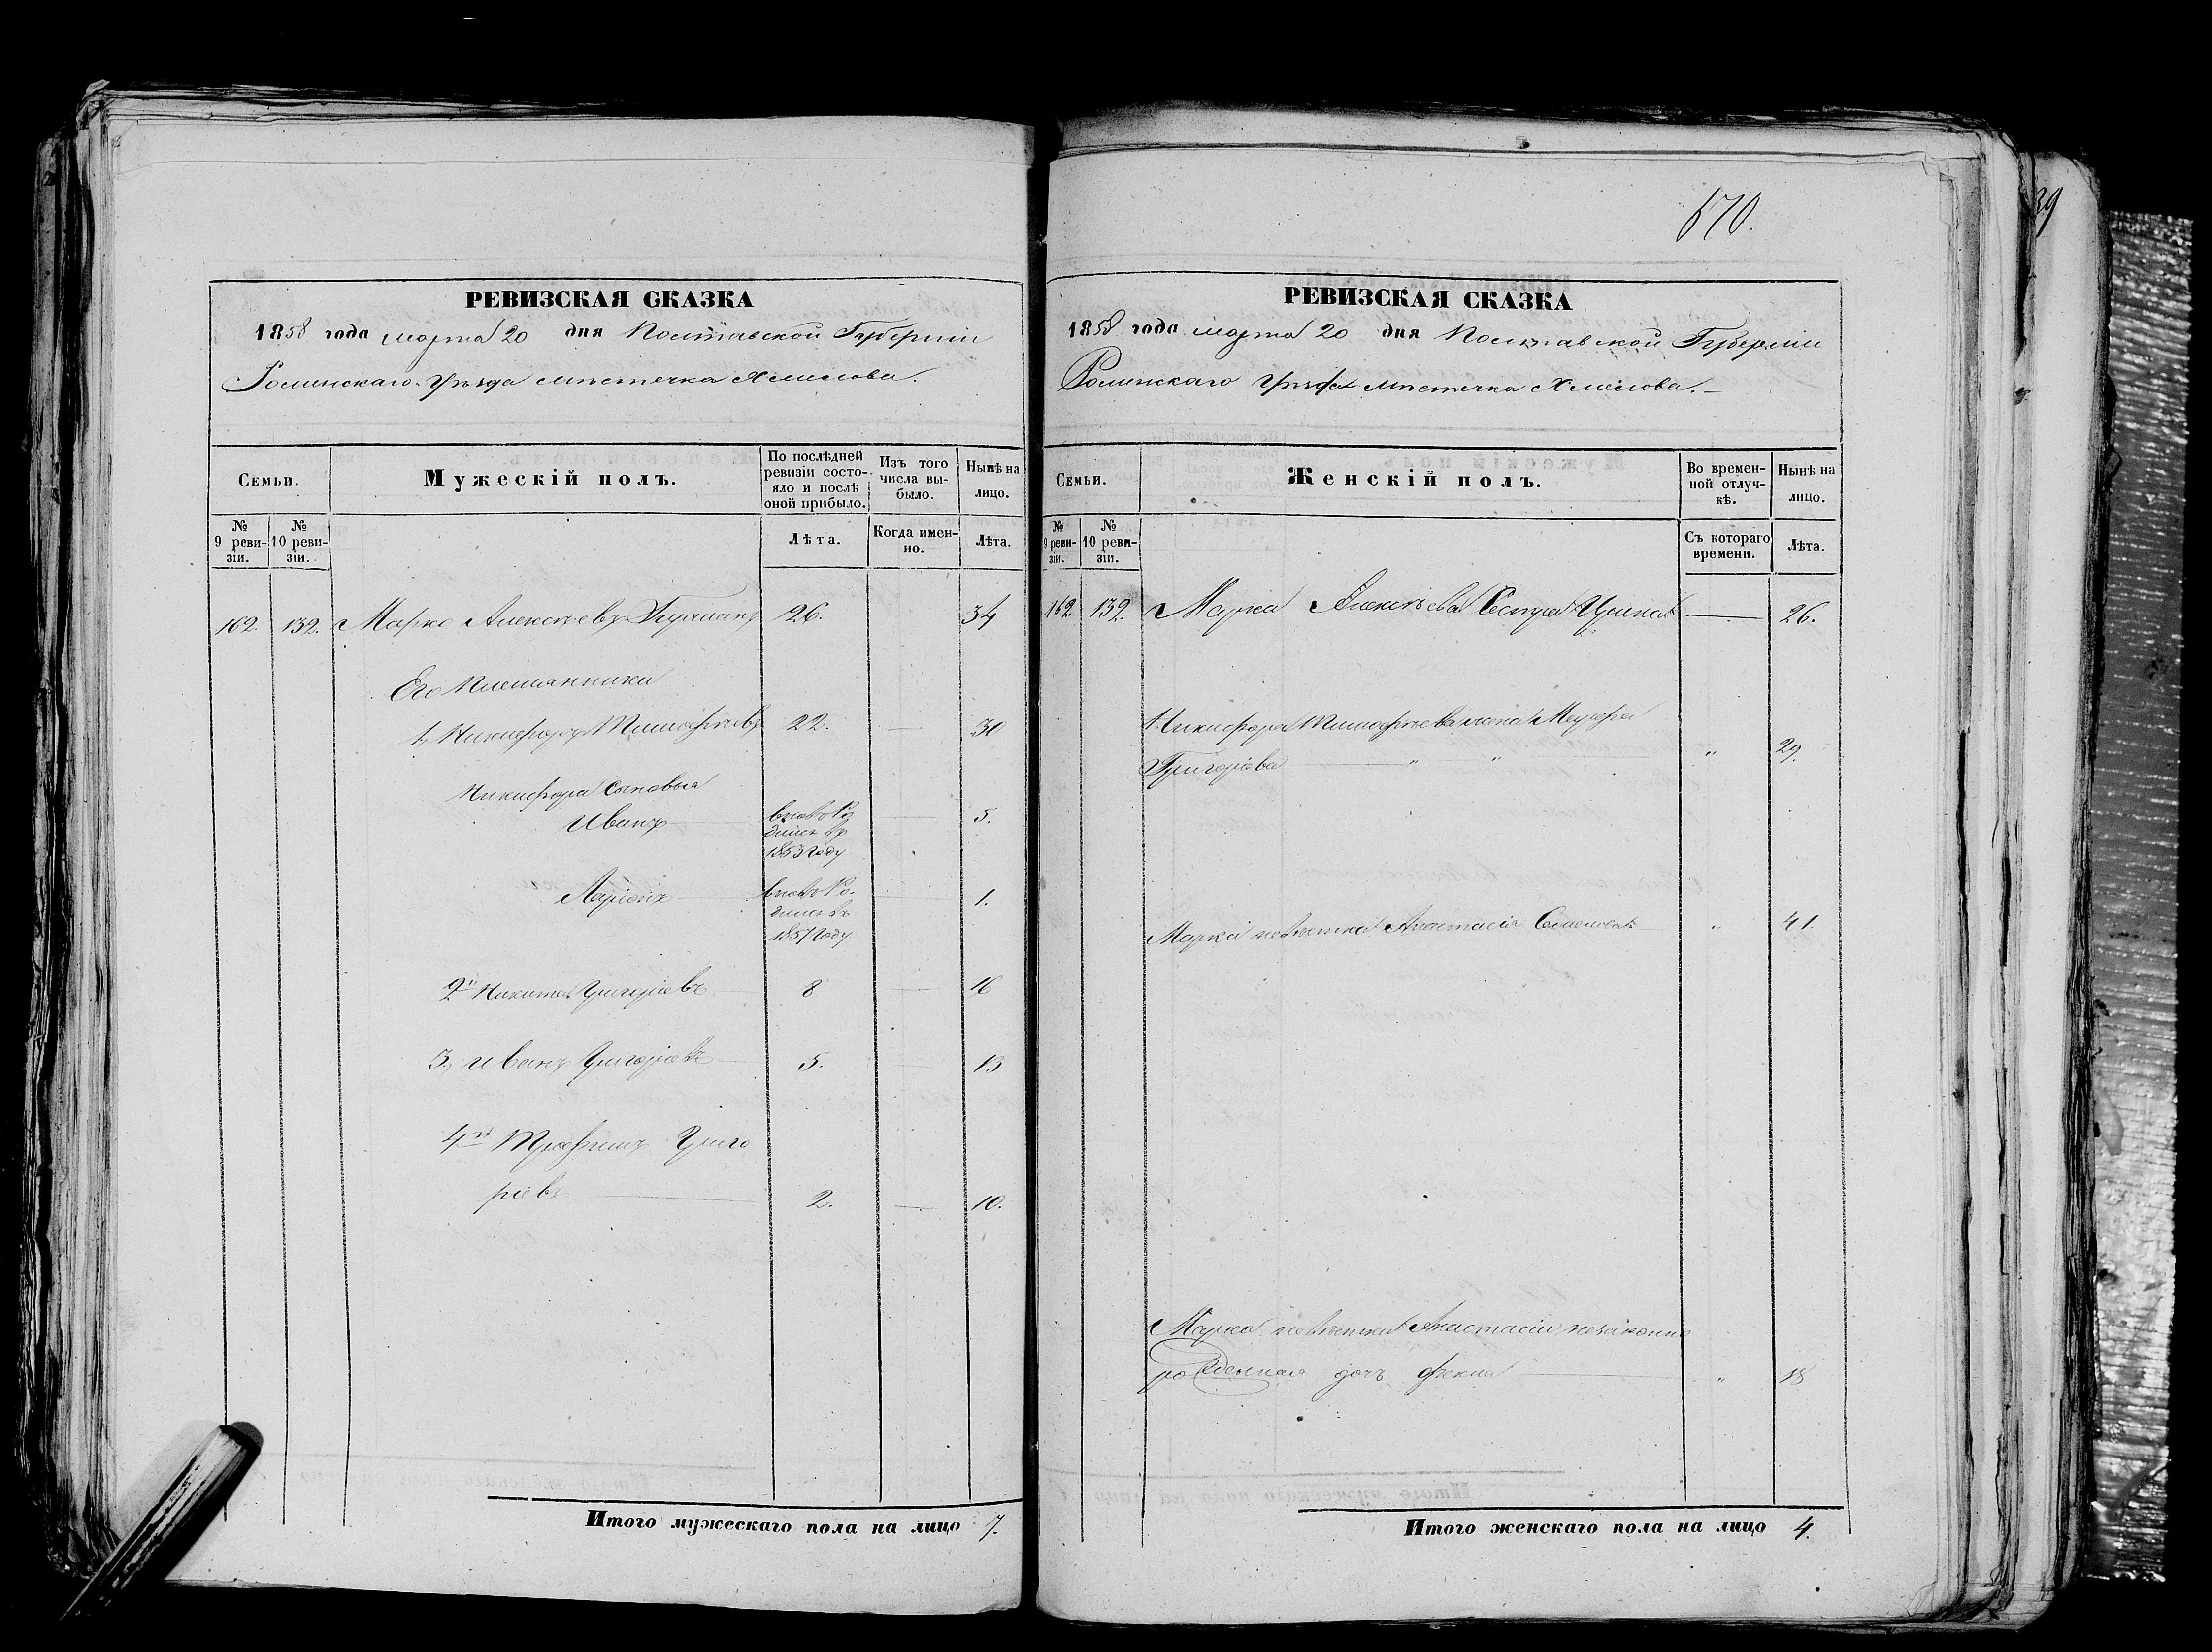 РЕВИЗСКАЯ СКАЗКА
1858 года марта 20 дня Полтавской Губерніи
Роменскаго уѣзда мѣстечка Хмелова.
Семьи.
Мужескій полъ.
По послѣдней ревизіи состояло и послѣ оной прибыло.
Изъ того числа выбыло.
Нынѣ на лицо.
№ 9 ревизіи.
№ 10 ревизіи.
Лѣта.
Когда именно.
Лѣта.
162. 132. Марко Алексѣевъ 26. 34
Его племянники
1, Никифоръ Тимофѣевъ 22. — 30
Никифора сыновья
Иванъ — 5.
вновь Ро
дился въ
1853 году
Ларіонъ — 1.
вновь Ро-
дился въ
1857 году
2й Никита Григорьевъ 8 — 16
3, Иванъ Григорьевъ 5. 13
4й Трофимъ Григо
рьевъ — 2. — 10.
Итого мужескаго пола на лицо 7.
670.
39
РЕВИЗСКАЯ СКАЗКА
1858 года марта 20 дня Полтавской Губерніи
Роменскаго уѣзда мѣстечка Хмелова. —
Семьи.
Женскій полъ.
Во временной отлучкѣ.
Нынѣ на лицо.
№ 9 ревизіи.
№ 10 ревизіи.
Съ котораго времени.
Лѣта.
162. 132. Марка Алексѣева Сестра — 26.
Никифора Тимофѣева жена
Григорьева — " " — " 29.
Марка невѣстка Анастасія Семенова " 41.
Марка невѣстки Анастасіи незаконно
рожденная дочь Фекла — " 18
Итого женскаго пола на лицо 4.